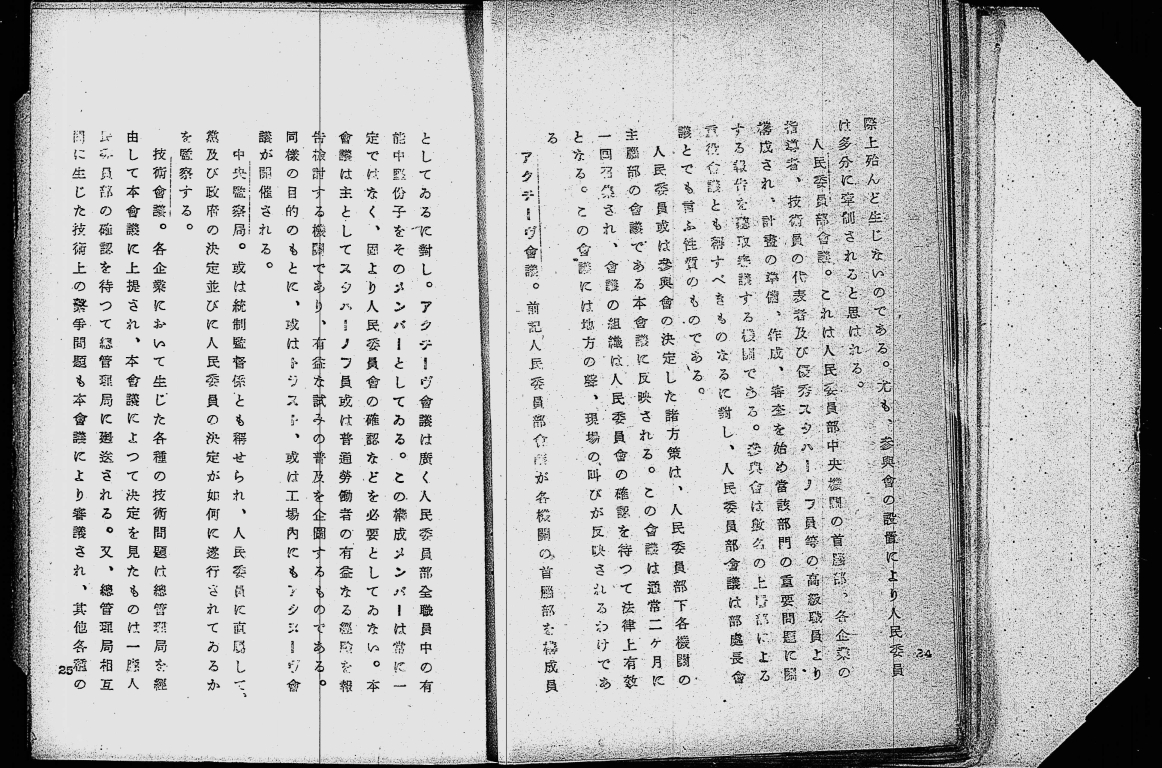 際上殆んど生じないのである。尤も、參與會の設置により人民委員
は多分に牽制されると思はれる。
人民委員部會議。これは人民委員部中央機關の首腦部、各企業の
指導者、技術員の代表者及び優秀スタハーノフ員等の高級職員より
構成され、計畫の準備、作成、審査を始め當該部門の重要問題に關
する報告を聽取審議する機關である。參與會は數名の上層部による
重役會議とも稱すべきものなるに對し、人民委員部會議は部處長會
議とでも言ふ性質のものである。
人民委員或は參與會の決定した諸方策は、人民委員部下各機關の
主腦部の會議である本會議に反映される。この會議は通常二ケ月に
一回召集され、會議の組織は人民委員會の確認を待つて法律上有效
となる。この會議には地方の聲、現場の叫びが反映されるわけであ
る
アクチーヴ會議。前記人民委員部會議が各機關の首腦部を構成員
24
としてゐるに對し。アクチーヴ會議は廣く人民委員部全職員中の有
能中堅份子をそのメンバーとしてゐる。この構成メンバーは常に一
定ではなく、固より人民委員會の確認などを必要としてゐない。本
會議は主としてスタハーノフ員或は普通勞働者の有益なる經驗を報
告檢討する機關であり、有益な試みの普及を企圖するものである。
同樣の目的のもとに、或はトラスト、或は工場內にもアクチーヴ會
議が開催される。
中央監察局。或は統制監督係とも稱せられ、人民委員に直屬して、
黨及び政府の決定並びに人民委員の決定が如何に遂行されてゐるか
を監察する。
技術會議。各企業において生じた各種の技術問題は總管理局を經
由して本會議に上提され、本會議によつて決定を見たものは一應人
民委員部の確認を待つて總管理局に廻送される。又、總管理局相互
間に生じた技術上の繫爭問題も本會議により審議され、其他各種の
25